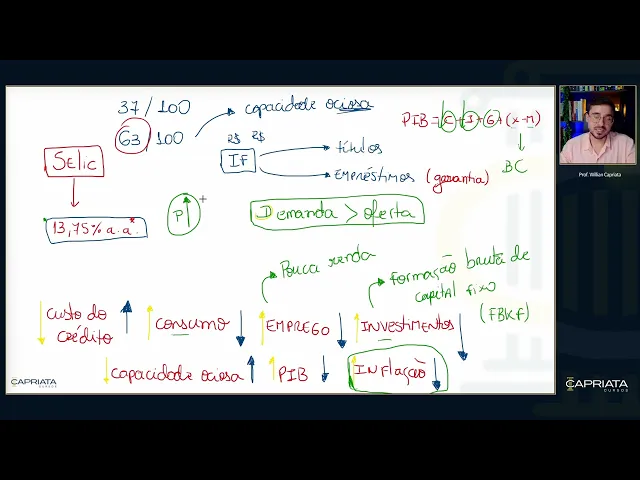 37/100
63/100
capacidade ociosa
R$ R$
PIB = C + I + G + (X - M)
BC
Prof. Willian Capriata
SELIC
IF
títulos
EMPRÉSTIMOS (garantia)
13,75% a.a.*
P
Demanda > oferta
Pouca renda
formação bruta de
capital fixo
(FBKF)
custo do
crédito
consumo
EMPREGO
INVESTIMENTOS
capacidade ociosa
PIB
INFlação
CAPRIATA
CURSOS
CAPRIATA
CURSOS